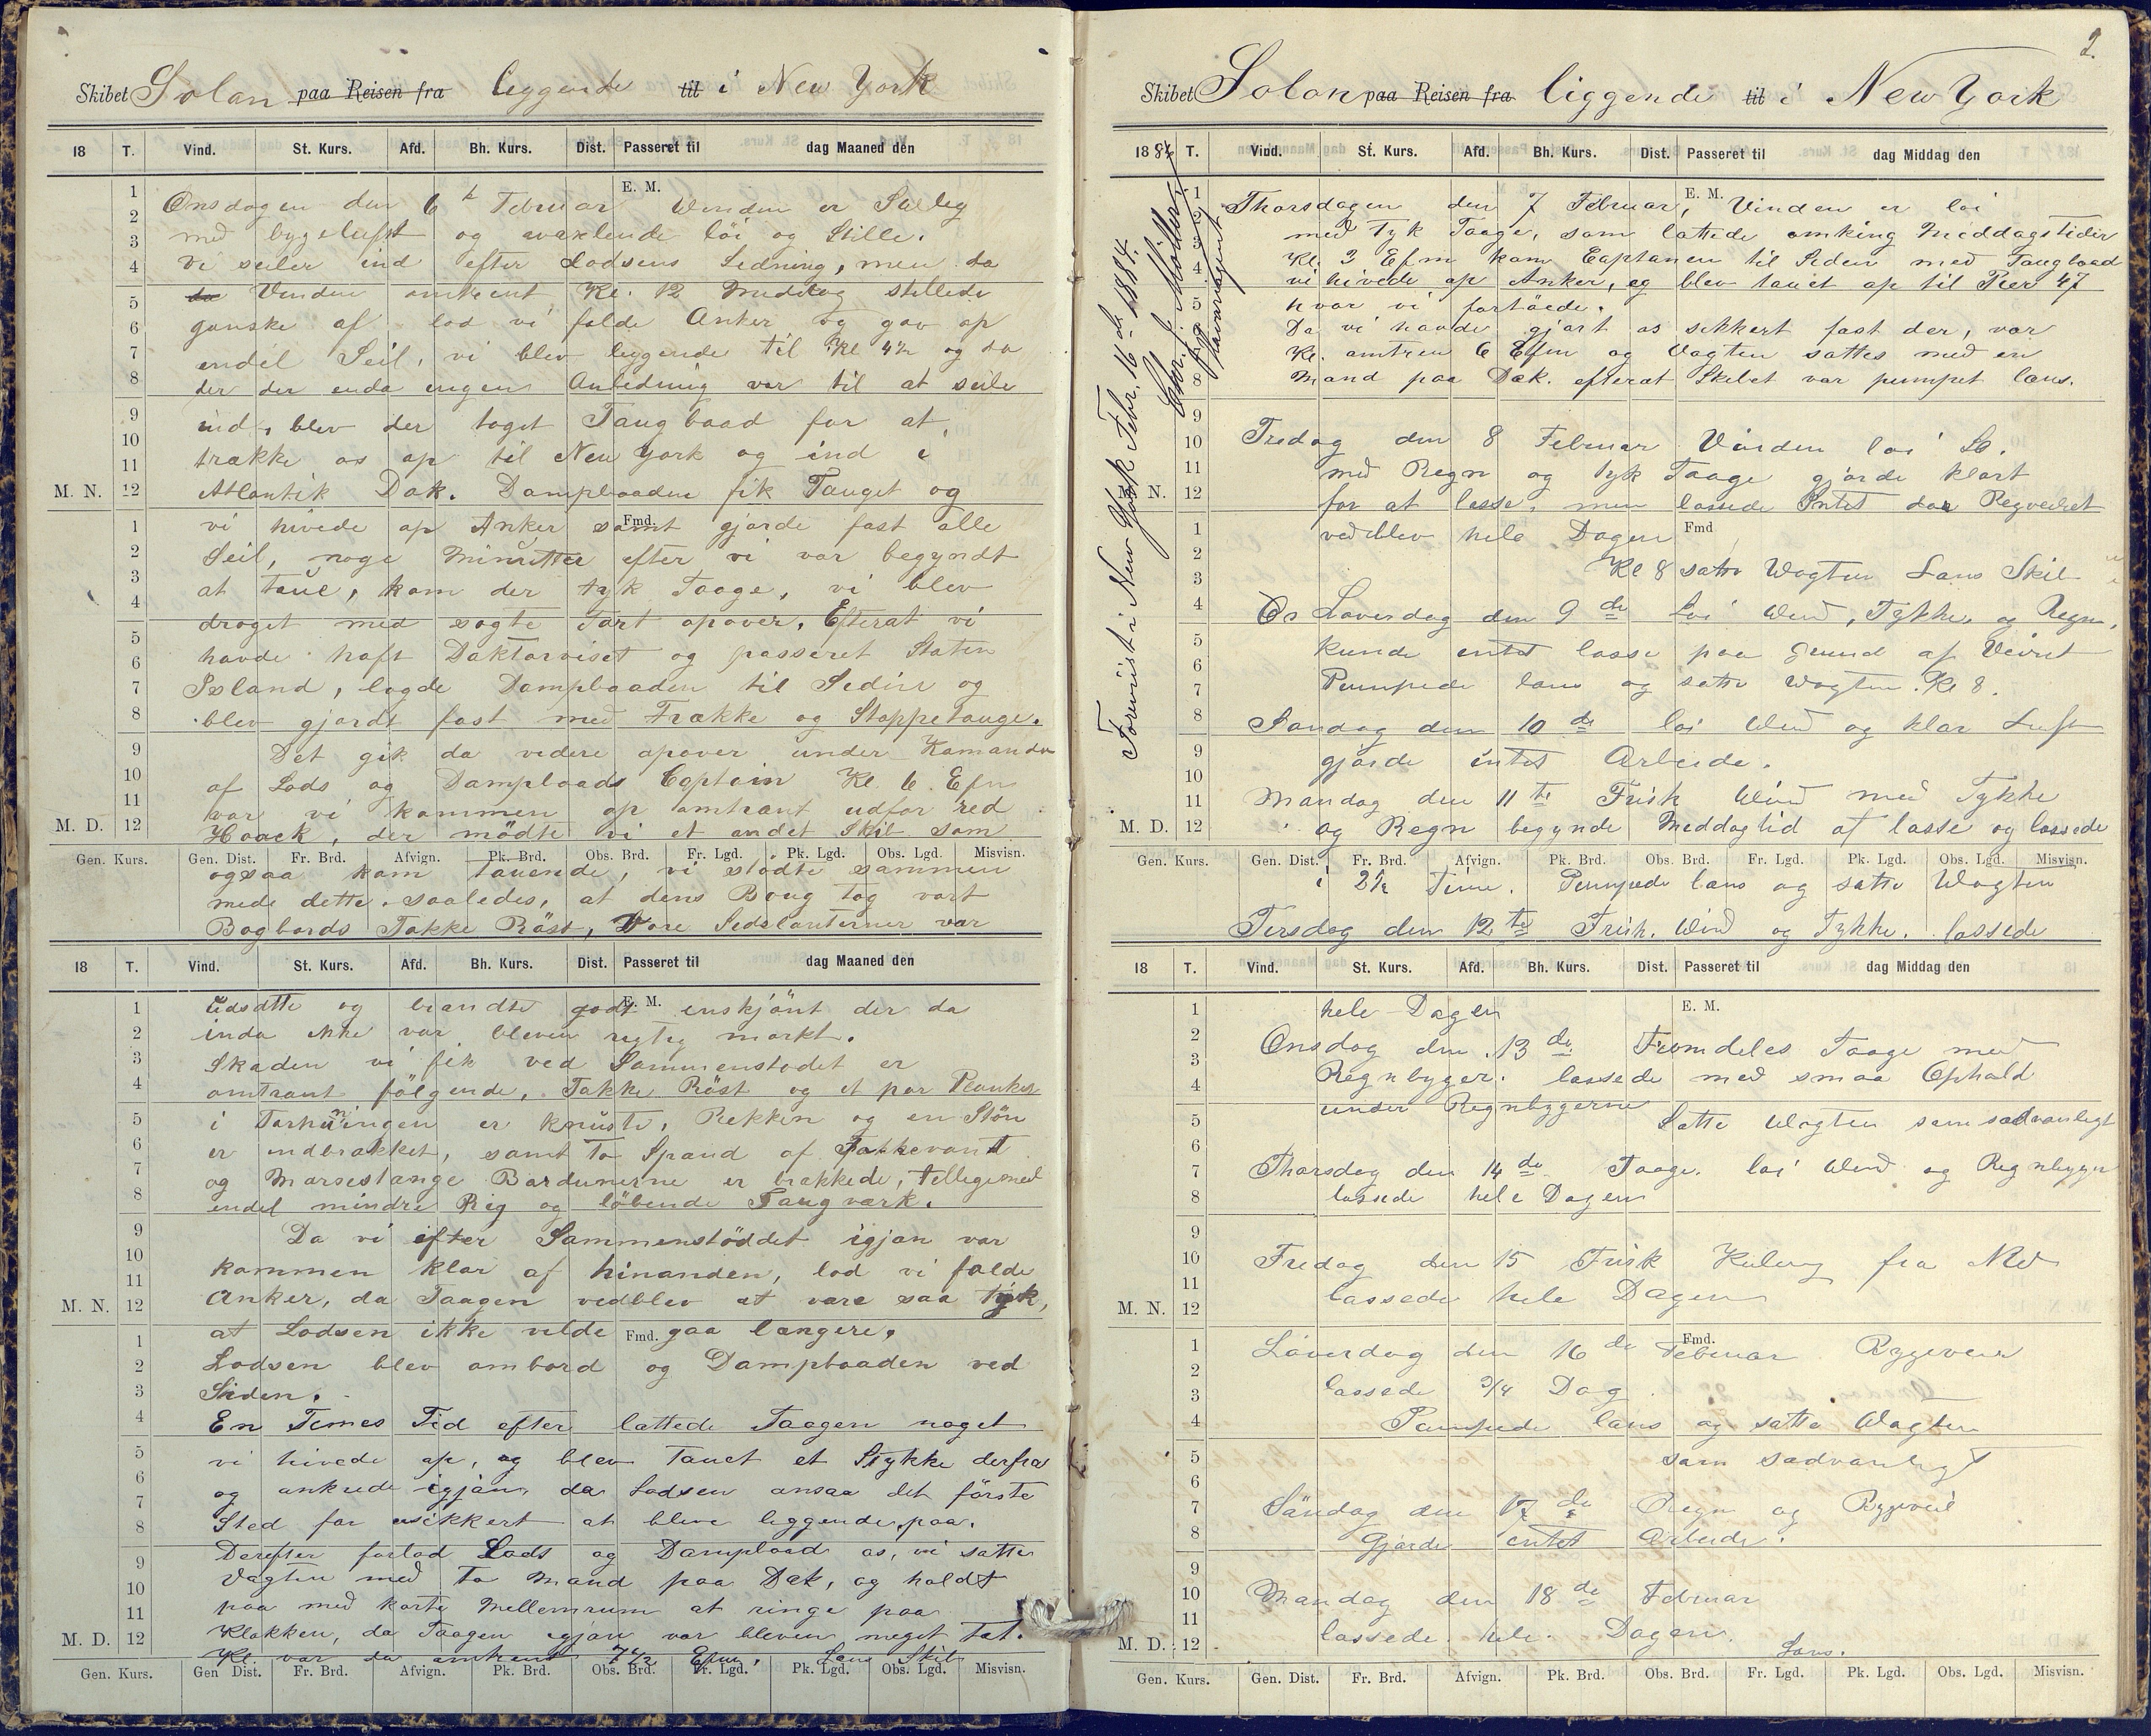 Skibet Solan paa Reisen fra leggende til i New York
18 T. Vind. St. Kurs. Afd. Bh. Kurs. Dist. Passeret til dag Maaned den
E. M.
Onsdagen den 6 Februar Vinden er
med bygeluft og vaxlende löi og Stille.
Vi seiler ind efter Lodsens Ledning, men da
da Vinden omtrent Kl. 12 Middag stillede
ganske af lod vi falde Anker og gav op
endel Seil, vi blev leggende til Kl 4½ og da
der der enda ingen Anledning var til at seile
ind, blev der toget Taugbaad for at
trække os op til New York og ind i
M. N. Atlantik Dok. Dampbaaden fik Tauget og
Fmd.
vi hivede op Anker samt gjorde fast alle
Seil, noge Minutter efter vi var begyndt
at taue, kom der tyk Taage, vi blev
droget med sagte Fart opover, Efterat vi
havde haft Doktorviset og passeret Staten
Island, lagde Dampbaaden til Siden og
blev gjordt fast med Trække og Stoppetauge.
Det gik da videre opover under Komando
af Lods og Dampbaads Captain Kl. 6 Efm
var vi kommen op omtrant udfor red
M. D. Hoock, der mödte vi et andet Skib som
Gen. Kurs. Gen. Dist. Fr. Brd. Afvign. Pk. Brd. Obs. Brd. Fr. Lgd. Pk. Lgd. Obs. Lgd. Misvisn.
ogsaa kom tauende, vi stödte sammen
mede dette. saaledes, at dens Boug tog vort
Bagbords Fokke Röst, Vore Sidelanterner var
18 T. Vind. St. Kurs. Afd. Bh. Kurs. Dist. Passeret til dag Maaned den
E. M.
udsatte og brandte godt enskjönt der da
inda ikke var bleven regtig morkt.
Skaden vi fik ved Sammenstodet er
omtrant fölgende, Fokke Röst og et par Planker
i Forhüningen er knuste, Rekken og en Stön
er indbrækket, samt to Spand af Fokkevant
og Marsestange Bardunerne er brækkede, tellegemed
endel mindre Rig og löbende Taugværk.
Da vi efter Sammenstöddet igjan var
kommen klar af hinanden, lod vi falde
M. N. Anker, da Taagen vedblev at være saa tyk,
Fmd.
at Lodsen ikke vilde gaa længere.
Lodsen blev ombord og Dampbaaden ved
Siden.
En Times Tid efter lættede Taagen noget
vi hivede op, og blev Tauet et Stykke derfra
og ankrede igjan, da Lodsen ansaa det förste
Sted for usikkert at bleve leggende paa.
Derefter forlod Lods og Dampbaad os, vi satte
Vagten med to Mand paa Dæk, og holdt
paa med korte Mellemrum at ringe paa
M. D. Klokken, da Taagen igjan var bleven meget tæt.
Kl. var da omtrent 7½ Efm. Læns Skib
Gen. Kurs. Gen Dist. Fr. Brd. Afvign. Pk. Brd. Obs. Brd. Fr. Lgd. Pk. Lgd. Obs. Lgd. Misvisn.
2.
Skibet Solon paa Reisen fra liggende til i New York
1884 T. Vind. St. Kurs. Afd. Bh. Kurs. Dist. Passeret til dag Middag den
Forevist i New York Febr. 16 de 1884.
E. M.
Thorsdagen den 7 Februar, Vinden er löi
med Tyk Taage, som lættede omking Meddagstider
Kl. 3 Efm kom Captanen til Siden med Taugbaad
vi hivede op Anker, og blev tauet op til Pier 47
hvor vi fortöiede.
Da vi havde gjort os sikkert fast der, var
Kl. omtren 6 Efm og Vagten sattes med en
Mand paa Dæk. efterat Skibet var pumpet læns.
Fredag den 8 Februar Vinden löi So.
med Regn og tyk Taage gjorde klart
M. N. for at losse, men lossede Intet da Regveiret
Fmd
vedblev hele Dagen
Kl 8 satte Wagten Læns Skib
Löverdag den 9 de Löi Wind, Tykke og Regn,
kunde intet losse paa grund af Veiret
Pumpede læns og satte Wagten. Kl 8.
Söndag den 10 de löi Wind og klar Luft
gjorde intet Arbeide.
Mandag den 11 te Frisk Wind med Tykke
M. D. og Regn begynde Meddagtid at losse og lossede
Gen. Kurs. Gen. Dist. Fr. Brd. Afvign. Pk. Brd. Obs. Brd. Fr. Lgd. Pk. Lgd. Obs. Lgd. Misvisn.
i 2½ Time. Pumpede læns og satte Wagten
Tirsdag den 12 te Frisk. Wind og Tykke. lossede
18 T. Vind. St. Kurs. Afd. Bh. Kurs. Dist. Passeret til dag Middag den
E. M.
hele Dagen
Onsdag den 13 de Fremdeles Taage med
Regnbyger. lossede med smaa Ophold
under Regnbygerne
Satte Wagten som sædvanligt
Thorsdag den 14 de Taage. löi Wind og Regnbyger
lossede hele Dagen
Fredag den 15 Frisk Kuling fra NW
M. N. lossede hele Dagen
Fmd.
Löverdag den 16 de Februar Bygeveir
lossede 3/4 Dag
Pumpede læns og satte Wagten
som sædvanligt
Söndag den 17 de Regn og Bygeveir
Gjorde intet Arbeide.
Mandag den 18 de Februar
M. D. lossede hele Dagen.
Læns.
Gen. Kurs. Gen. Dist. Fr. Brd. Afvign. Pk. Brd. Obs. Brd. Fr. Lgd. Pk. Lgd. Obs. Lgd. Misvisn.